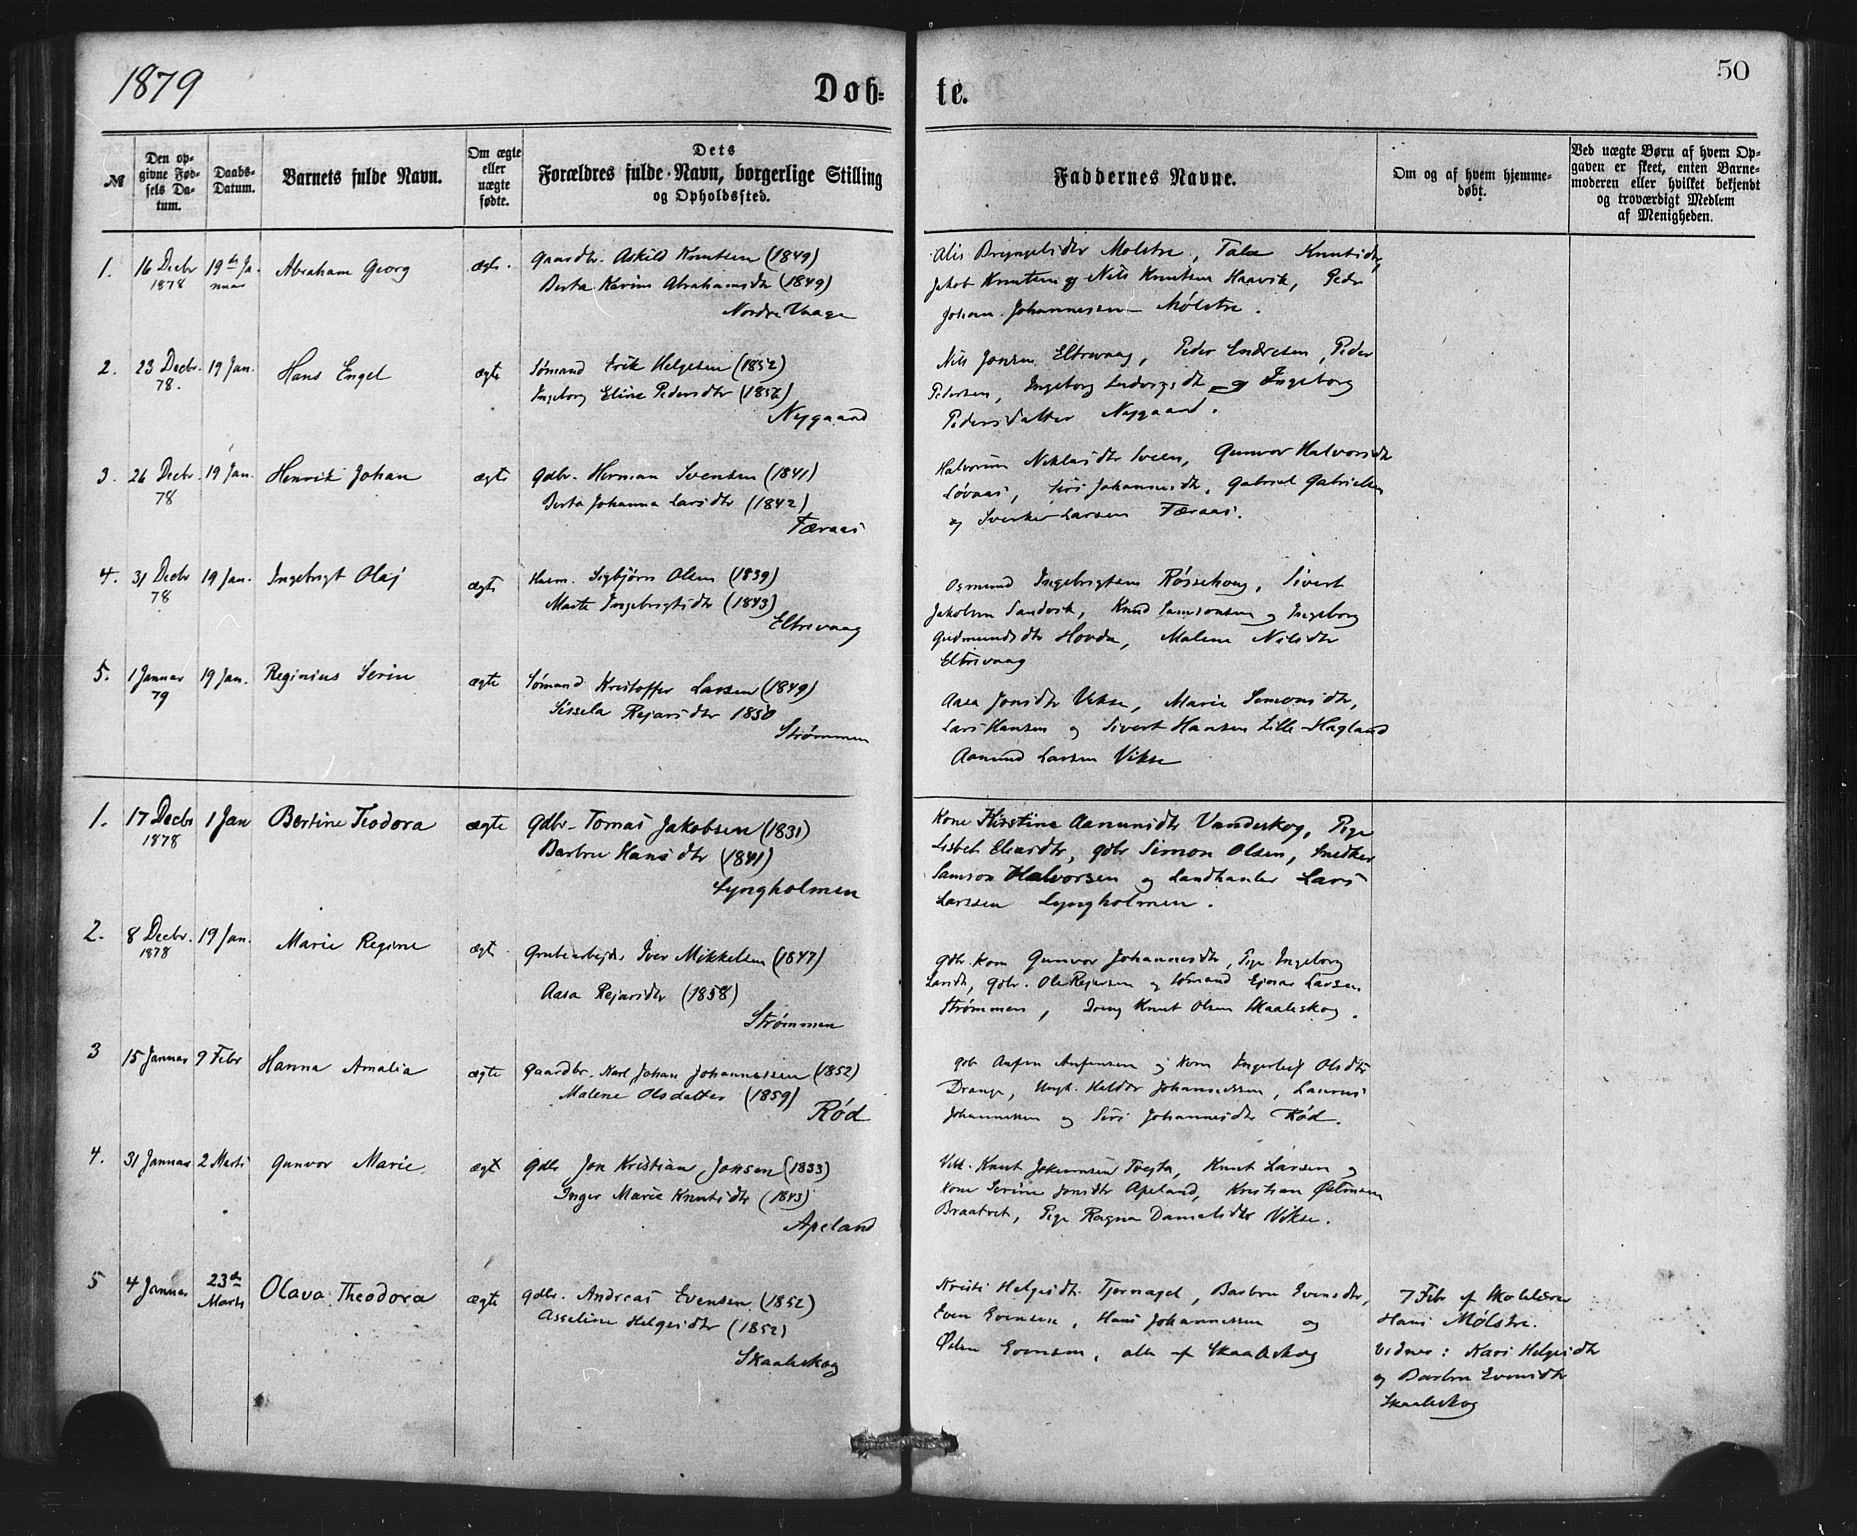 1879
Døbte.
50
№
Den opgivne Fødsels Datum.
Daabs-Datum.
Barnets fulde Navn.
Om ægte eller uægte fødte.
Dets Forældres fulde Navn, borgerlige Stilling og Opholdssted.
Faddernes Navne.
Om og af hvem hjemmedøbt.
Ved uægte Børn af hvem Opgaven er skeet, enten Barnemoderen eller hvilket bekjendt og troværdigt Medlem af Menigheden.
1. 16 Decbr 1878 19de Januar Abraham Georg ægte.
Gaardbr. Askild Knutsen (1849)
Berta Karine Abrahamsdtr (1849)
Nordre Vaage
Molstre, Knutsdtr,
Jakob Knutsen og Nils Knutsen Haavik, Peder
Johan Johannesen Mølstre.
2. 23 Decbr. 78. 19 Jan. Hans Engel ægte
Sømand Erik Helgesen (1852)
Ingeborg Eline Pedersdtr (1852)
Nygaard
Nils Jonsen Eltrevaag, Peder Endresen, Peder
Pedersen, Ingeborg Ludvigsdtr og Ingeborg
Pedersdatter Nygaard.
3. 26 Decbr. 78 19 Jan. Henrik Johan ægte
Gdbr. Herman Svensen (1841)
Berta Johanna Larsdtr (1842)
Færaas
Niklasdtr Sveen, Gunvor Halvorsdtr
Løvaas, Siri Johannesdtr, Gabriel Gabrielsen
og Sverker Larsen Færaas.
4. 31 Decbr 78 19 Jan. Ingebrigt Olaj ægte
Husm. Sigbjørn Olsen (1839)
Marte Ingebrigtsdtr (1843)
Eltrevaag
Osmund Ingebrigtsen Røssehaug, Sivert
Jakobsen Sandvik, Knud Samsonsen og Ingeborg
Gudmundsdtr Hovda, Malene Nilsdtr
Eltrevaag
5. 1 Januar 79 19 Jan. Reginius Serin ægte
Sømand Kristoffer Larsen (1849)
Sissela Rejarsdtr 1850
Strømmen
Aasa Jonsdtr Vikse, Marie Simonsdtr,
Lars Hansen og Sivert Hansen Lille-Hagland
Aamund Larsen Vikse
1. 17 Decbr 1878 1 Jan Bertine Teodora ægte
Gdbr. Tomas Jakobsen (1831)
Barbru Hansdtr (1841)
Lyngholmen
Kone Kirstine Aanunsdtr Vandeskog, Pige
Lisbet Elisasdtr, gdbr Simon Olsen, Snedker
Samson Halvorsen og Landhandler Lars
Larssen Lyngholmen.
2. 8 Decbr. 1878 19 Jan. Marie Regine ægte
Grubearbejder Iver Mikkelsen (1847)
Aasa Rejarsdtr (1858)
Strømmen
gdbr. Kone Gunvor Johannesdtr, Pige Ingeborg
Larsdtr, gdbr. Ole Rejersen og Sømand Ejnar Larsen
Strømmen, Dreng Knut Olsen Skaaleskog.
3 15 Januar 9 Febr Hanna Amalia ægte
Gaardbr. Karl Johan Johannessen (1852)
Malene Olsdatter (1859)
Rød
gdbr og Kone Ingerleif Olsdtr
Drange, Ungk. Haldor Johannessen, Laurits
Johannessen og Siri Johannesdtr Rød.
4. 31 Januar 2 Marts Gunvor Marie ægte
Gdbr Jon Kristian Jonsen (1833)
Inger Marie Knutsdtr (1843)
Apeland
Knut Johannesen Tvejta, Knut Larsen og
Kone Serine Jonsdtr Apeland, Kristian Østensen
Braatvet, Pige Ragna Danielsdtr Vikse.
5 4 Januar 23de Marts Olava Theodora ægte
Gdbr. Andreas Evensen (1852)
Asseline Helgesdtr (1852)
Skaaleskog
Kristi Helgesdtr. Tjernagel, Barbru Evensdtr,
Even Evensen, Hans Johannessen og
Østen Evensen, alle af Skaaleskog
7 Febr af Skolelærer
Hans Mølstre.
Vidner: Kari Helgesdtr
og Barbru Evensdtr
Skaaleskog